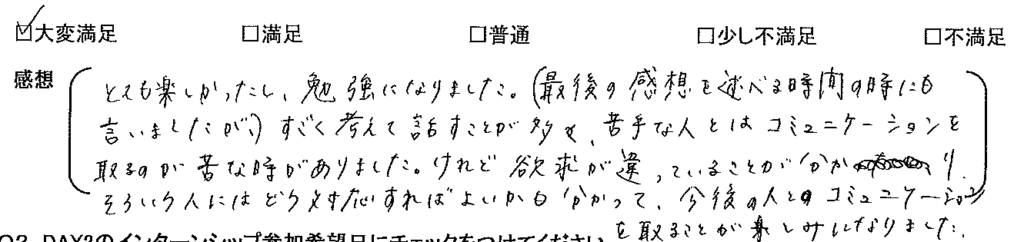 ☑大変満足 □満足 □普通 □少し不満足 □不満足
感想
とても楽しかったし、勉強になりました。(最後の感想を述べる時間の時にも
言いましたが、)すごく考えて話すことが多く、苦手な人とはコミュニケーションを
取るのが苦な時がありました。けれど欲求が違っていることが分かり、
そういう人にはどう対応すればよいかも分かって、今後の人とのコミュニケーション
を取ることが楽しみになりました。
Q3 DAY2のインターンシップ参加希望日にチェックをつけてください